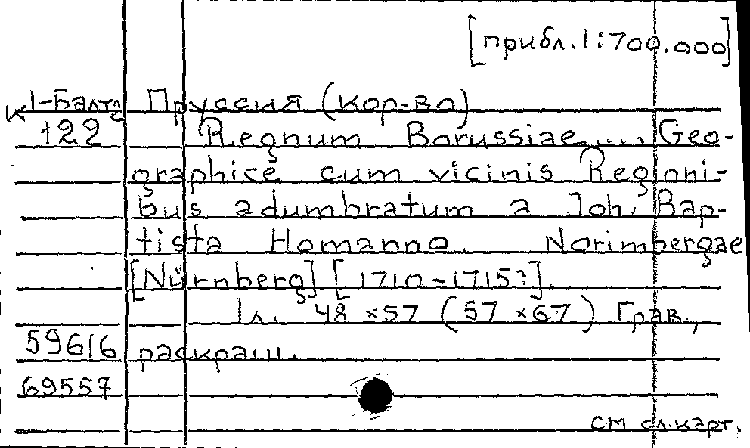 [прибл. 1:700.000]
К 1-Балт. Пруссия (кор-во)
122 Regnum Borussiae.... Geo-
graphice cum vicinis Regioni-
bus adumbratum a Joh. Bap-
tista Homanno. Norimbergae
[Nürnberg] [1710-1715?].
1 л. 48 × 57 (57 × 67) Грав.,
59616 раскраш.
69557
см сл. карт.